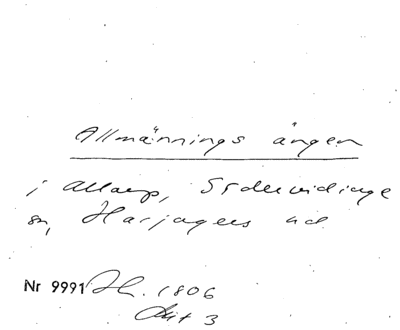 Allmännings ängen
i Allarp, Södervidinge
sn, Harjagers hd
Nr 9991 1806
Akt 3